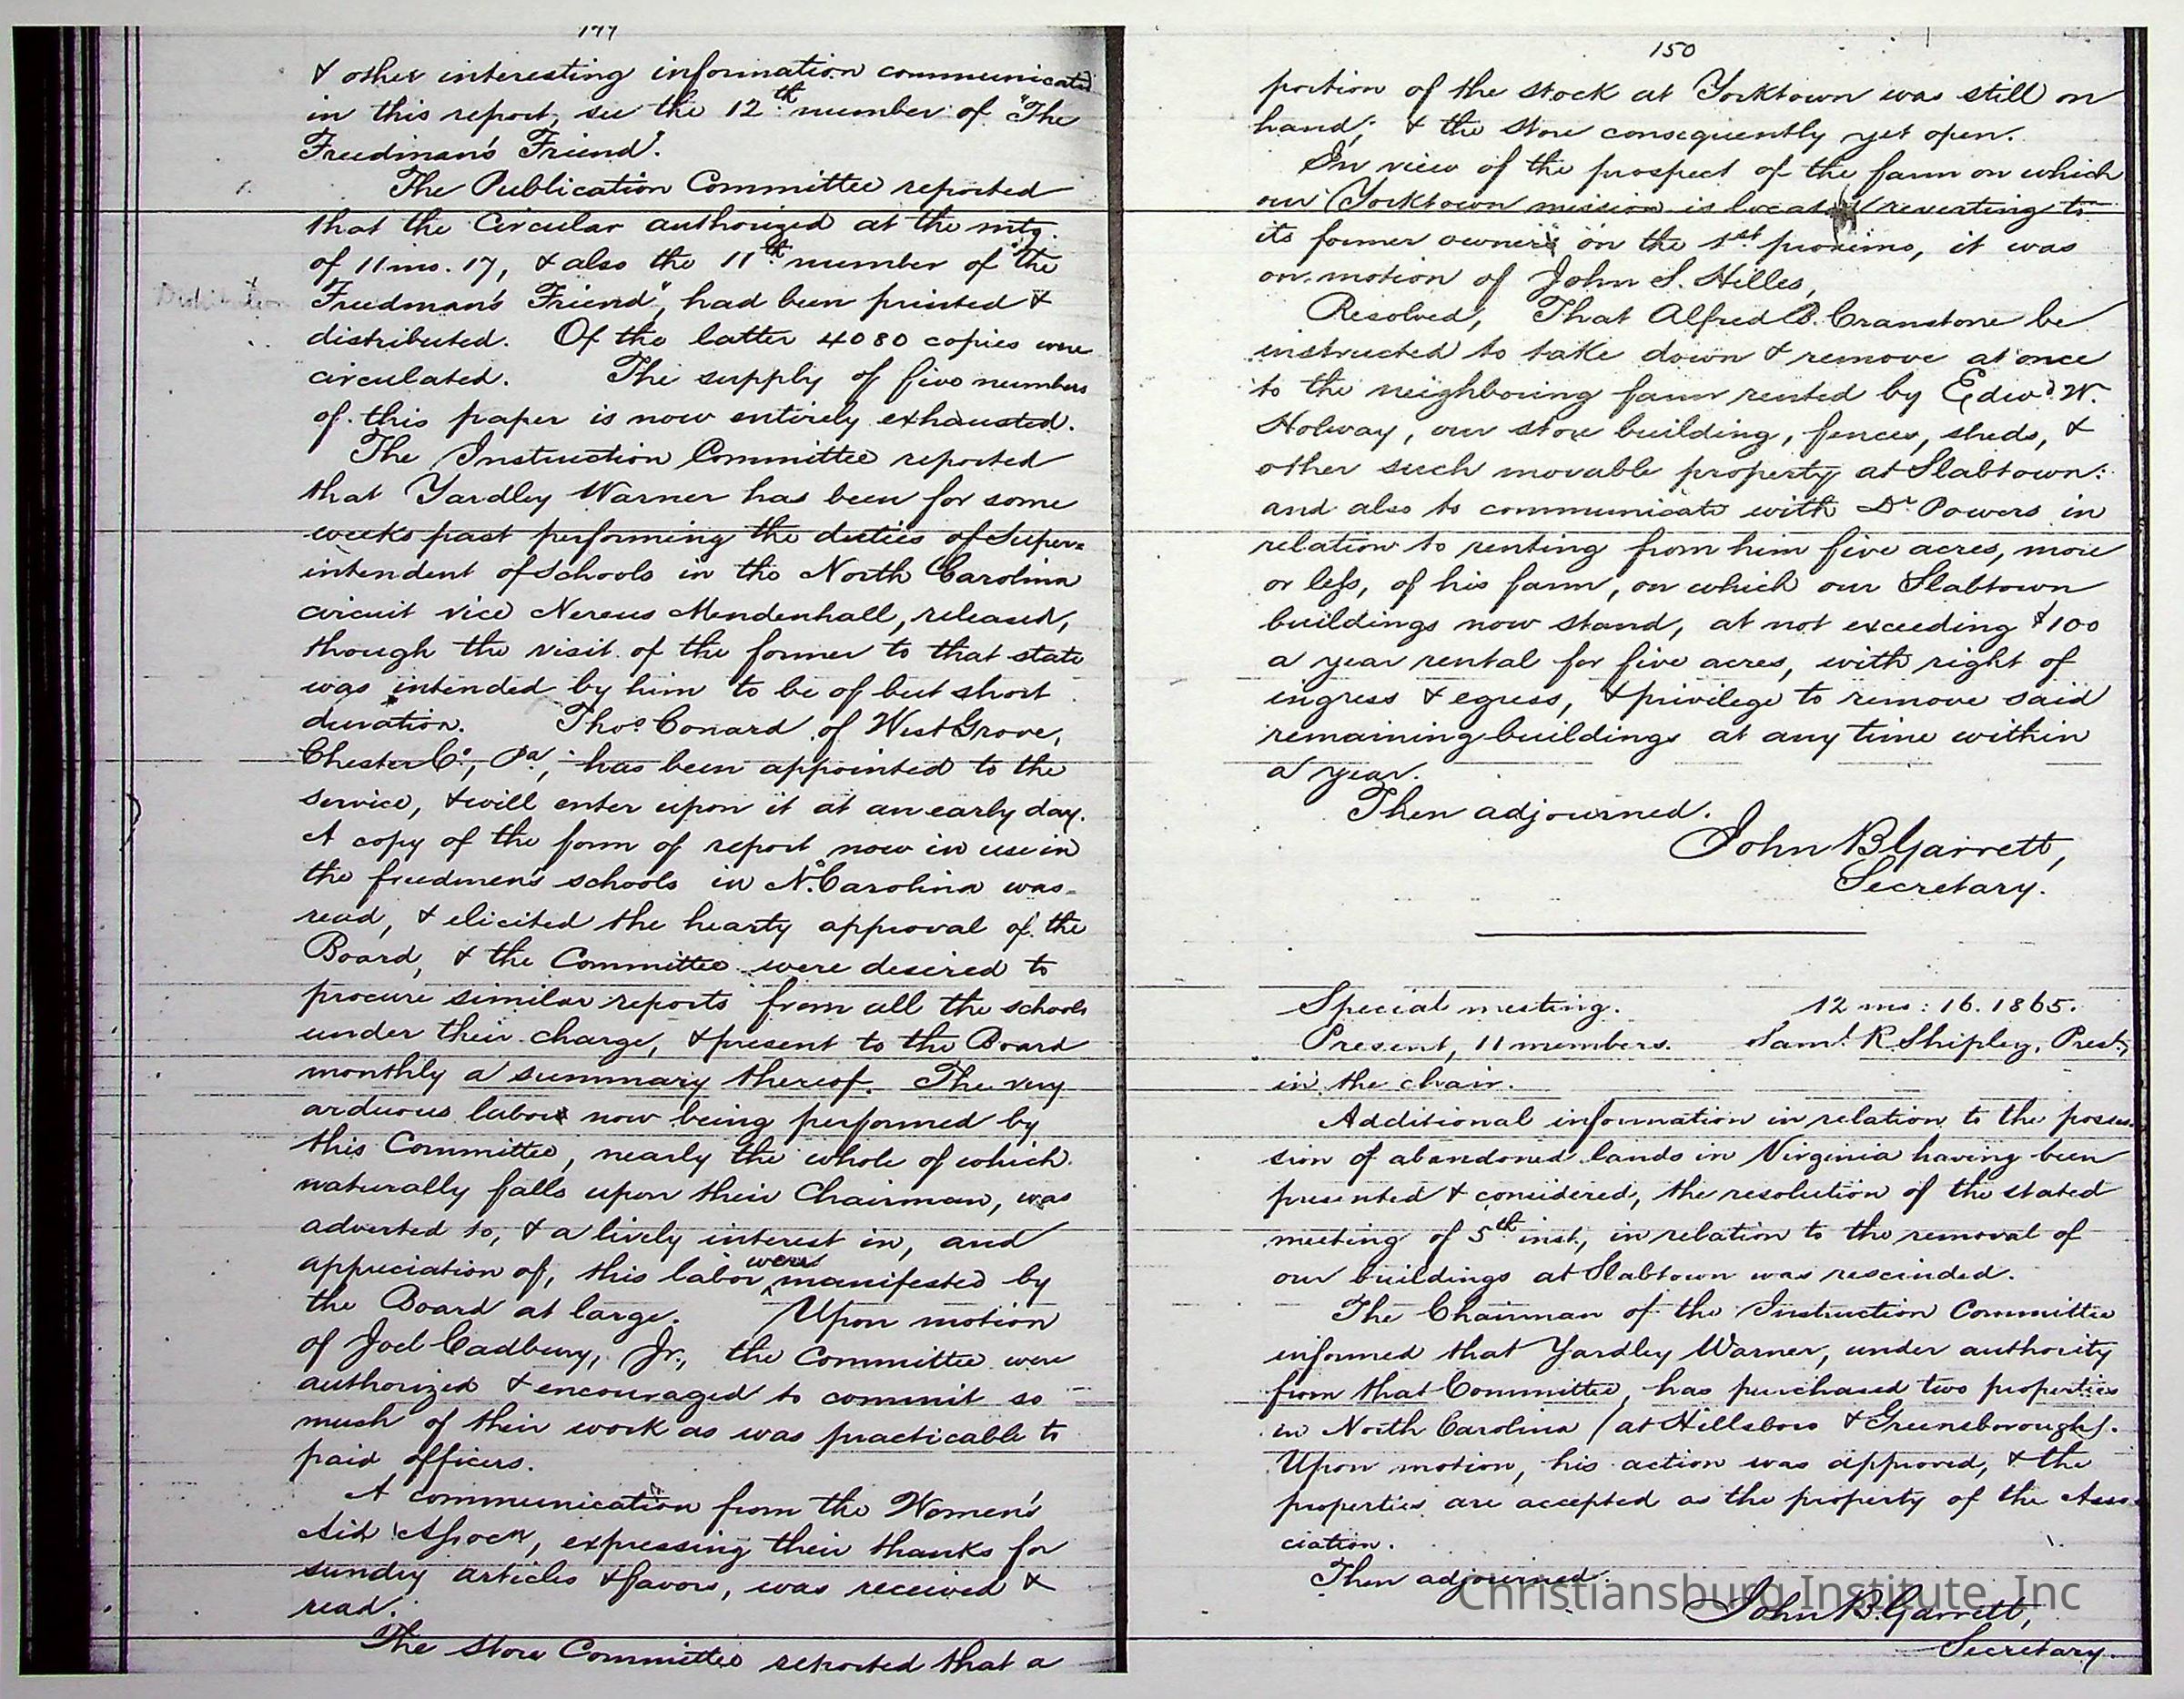 & other interesting information communicated
in this report, see the 12th number of "The
Freedman's Friend".
The Publication Committee reported
that the Circular authorized at the mtg.
of 11 mo. 17, & also the 11th number of "the
Freedman's Friend", had been printed &
distributed. Of the latter 4080 copies were
circulated. The supply of five numbers
of this paper is now entirely exhausted.
The Instruction Committee reported
that Yardley Warner has been for some
weeks past performing the duties of Super-
intendent of Schools in the North Carolina
circuit vice Nereus Mendenhall, released,
though the visit of the former to that state
was intended by him to be of but short
duration. Thos. Conard, of West Grove,
Chester Co., Pa., has been appointed to the
service, & will enter upon it at an early day.
A copy of the form of report now in use in
the freedmen's schools in No. Carolina was
read, & elicited the hearty approval of the
Board, & the Committee were desired to
procure similar reports from all the schools
under their charge, & present to the Board
monthly a summary thereof. The very
arduous labor now being performed by
this Committee, nearly the whole of which
naturally falls upon their Chairman, was
adverted to, & a lively interest in, and
appreciation of, this labor were manifested by
the Board at large. Upon motion
of Joel Cadbury, Jr., the Committee were
authorized & encouraged to commit so
much of their work as was practicable to
paid officers.
A communication from the Women's
Aid Assocn, expressing their thanks for
sundry articles & favors, was received &
read.
The Store Committee reported that a
150
portion of the stock at Yorktown was still on
hand; & the store consequently yet open.
In view of the prospect of the farm on which
our Yorktown mission is located reverting to
its former owners on the 1st proximo, it was
on motion of John S. Hilles,
Resolved, That Alfred B. Cranstone be
instructed to take down & remove at once
to the neighboring farm rented by Edwd. W.
Holway, our store building, fences, sheds, &
other such movable property at Slabtown:
and also to communicate with Dr. Powers in
relation to renting from him five acres, more
or less, of his farm, on which our Slabtown
buildings now stand, at not exceeding $100
a year rental for five acres, with right of
ingress & egress, & privilege to remove said
remaining buildings at any time within
a year.
Then adjourned.
John B. Garrett,
Secretary.
Special meeting. 12 mo: 16. 1865.
Present, 11 members. Saml. R. Shipley, Prest.,
in the chair.
Additional information in relation to the posses-
sion of abandoned lands in Virginia having been
presented & considered, the resolution of the stated
meeting of 5th inst., in relation to the removal of
our buildings at Slabtown was rescinded.
The Chairman of the Instruction Committee
informed that Yardley Warner, under authority
from that Committee, has purchased two properties
in North Carolina (at Hillsboro & Greensborough).
Upon motion, his action was approved, & the
properties are accepted as the property of the Asso-
ciation.
Then adjourned.
Christiansburg Institute, Inc
John B. Garrett,
Secretary.